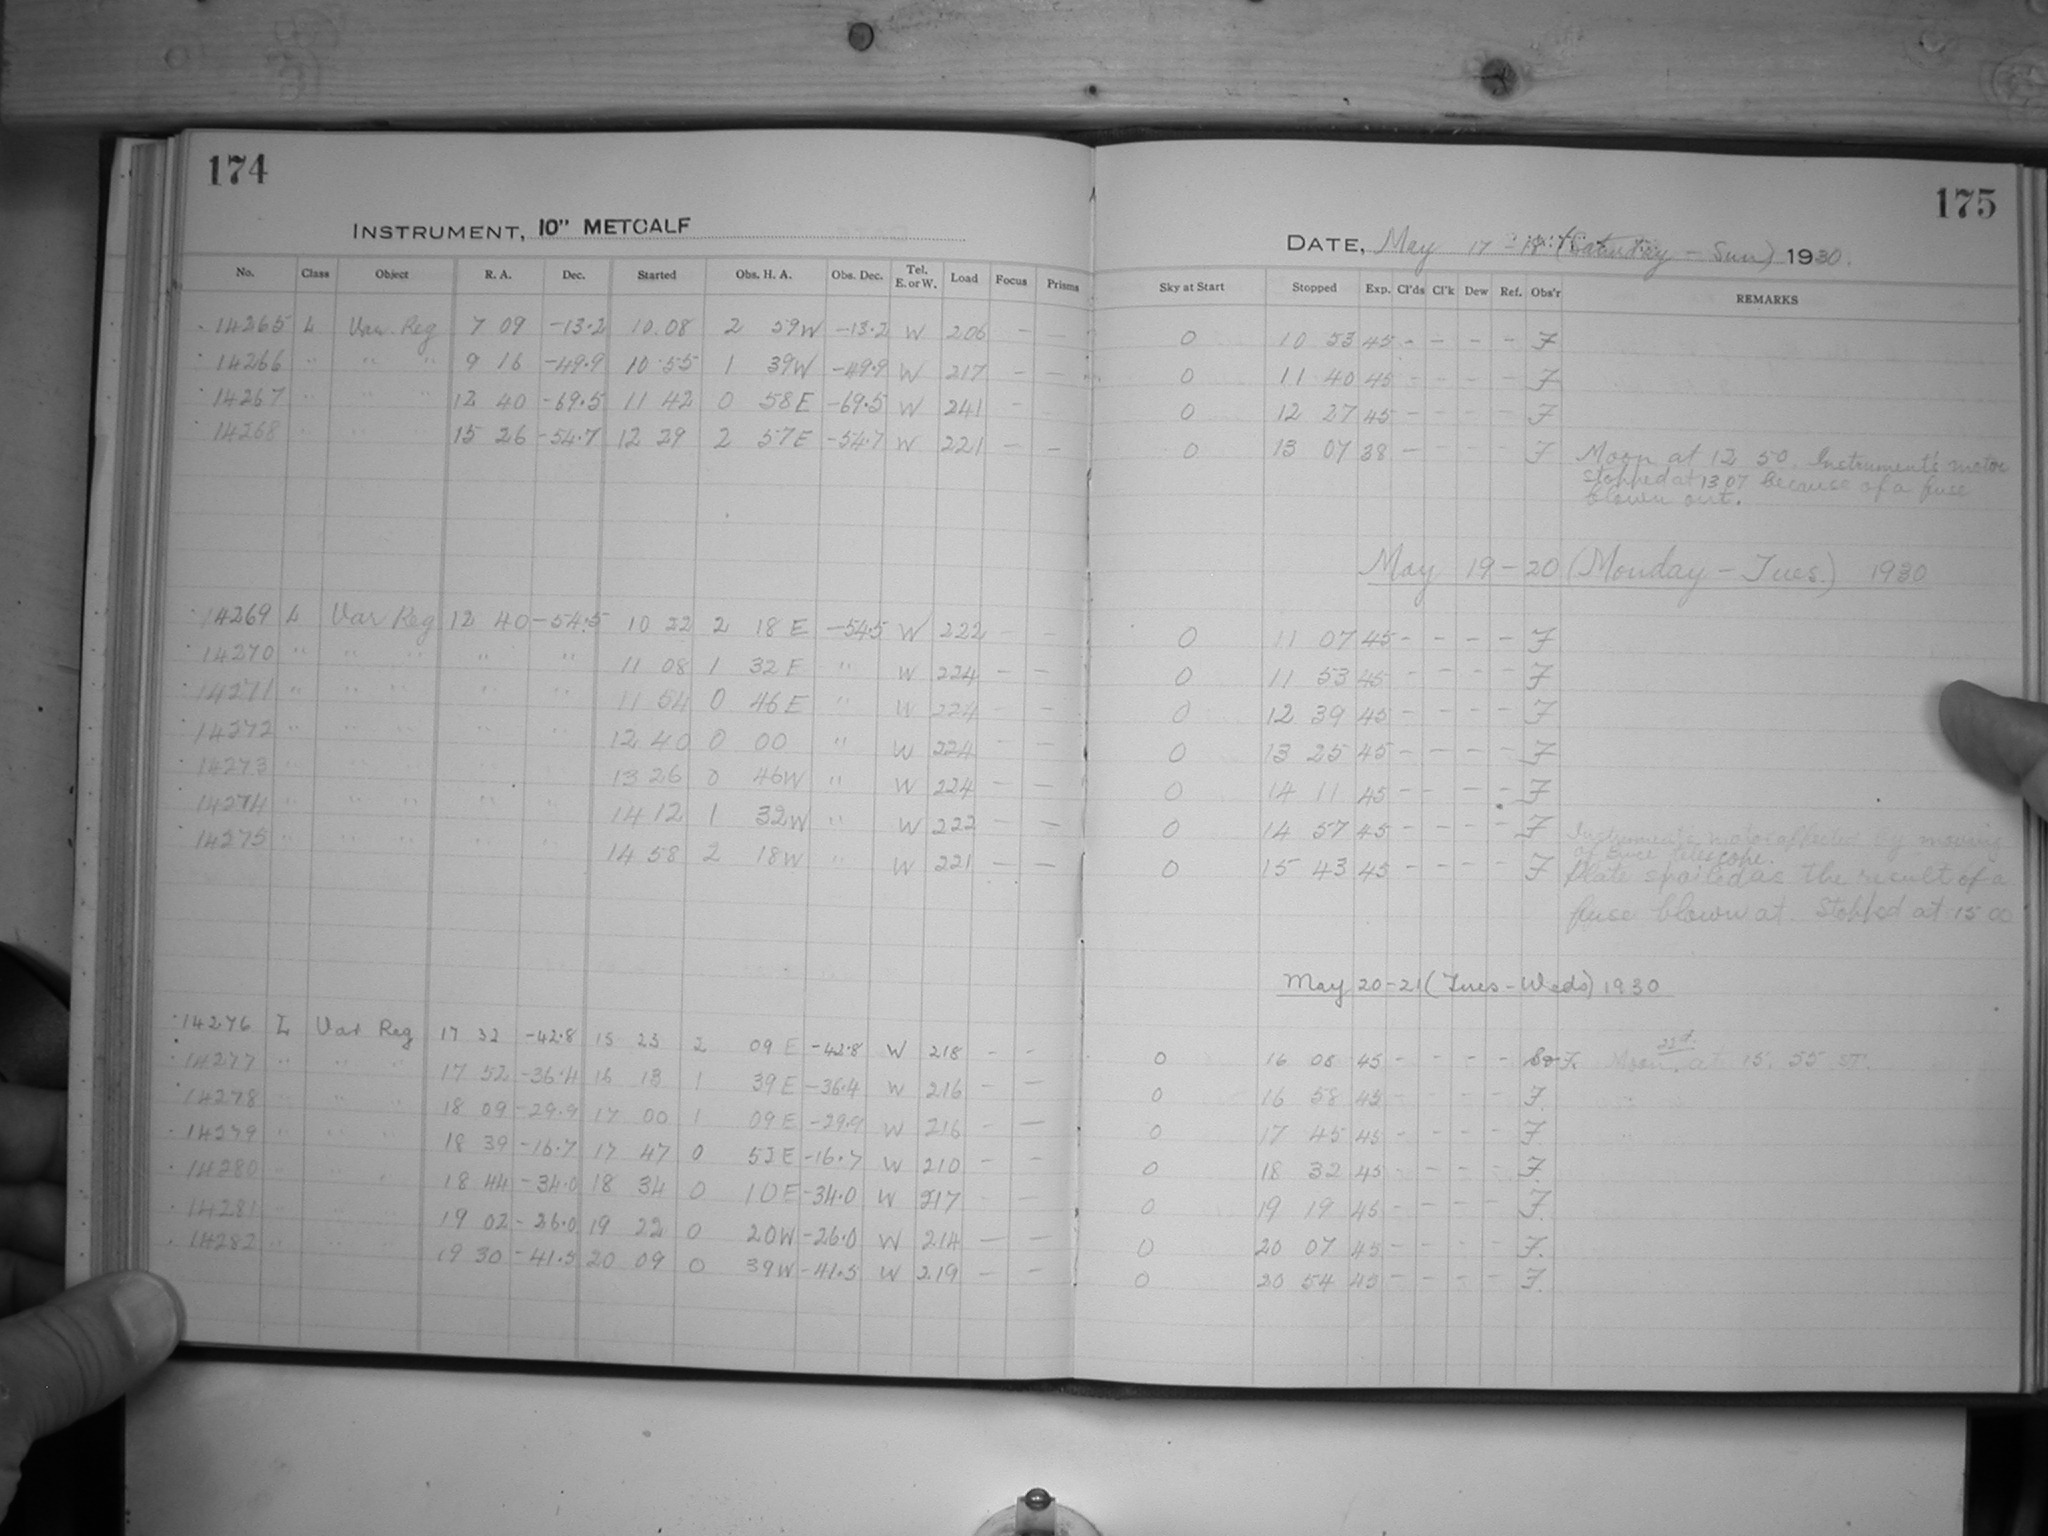 174
INSTRUMENT, 10" METCALF
No. Class Object R. A. Dec. Started Obs. H. A. Obs. Dec. Tel. E. or W. Load Focus Prisms
14265 L Var Reg 7 09 -13.2 10.08 2 59W -13.2 W 206 - -
14266 " " " 9 16 -49.9 10 55 1 39W -49.9 W 217 - -
14267 " " " 12 40 -69.5 11 42 0 58E -69.5 W 241 - -
14268 " " " 15 26 -54.7 12 29 2 57E -54.7 W 221 - -
14269 L Var Reg 12 40 -54.5 10 22 2 18 E -54.5 W 222 - -
14270 " " " " " 11 08 1 32 E " W 224 - -
14271 " " " " " 11 54 0 46 E " W 224 - -
14272 " " " " " 12 40 0 00 " W 224 - -
14273 " " " " " 13 26 0 46W " W 224 - -
14274 " " " " " 14 12 1 32W " W 222 - -
14275 " " " " " 14 58 2 18W " W 221 - -
14276 L Var Reg 17 32 -42.8 15 23 2 09 E -42.8 W 218 - -
14277 " " " 17 52 -36.4 16 13 1 39 E -36.4 W 216 - -
14278 " " " 18 09 -29.9 17 00 1 09 E -29.9 W 216 - -
14279 " " " 18 39 -16.7 17 47 0 52 E -16.7 W 210 - -
14280 " " " 18 44 -34.0 18 34 0 10 E -34.0 W 217 - -
14281 " " " 19 02 -26.0 19 22 0 20W -26.0 W 214 - -
14282 " " " 19 30 -41.5 20 09 0 39W -41.5 W 219 - -
175
DATE, May 17-18 (Saturday - Sun) 1930.
Sky at Start Stopped Exp. Cl'ds Cl'k Dew Ref. Obs'r REMARKS
0 10 53 45 - - - - F
0 11 40 45 - - - - F
0 12 27 45 - - - - F
0 13 07 38 - - - - F Moon at 12 50. Instrument's motor
stopped at 13 07 because of a fuse
blown out.
May 19-20 (Monday - Tues.) 1930
0 11 07 45 - - - - F
0 11 53 45 - - - - F
0 12 39 45 - - - - F
0 13 25 45 - - - - F
0 14 11 45 - - - - F
0 14 57 45 - - - - F Instrument's motor affected by moving
of Bruce telescope.
0 15 43 45 - - - - F Plate spoiled as the result of a
fuse blown at. Stopped at 15 00
May 20-21 (Tues - Weds) 1930
22d.
0 16 08 45 - - - - F. Moon at 15. 55 ST.
0 16 58 45 - - - - F.
0 17 45 45 - - - - F
0 18 32 45 - - - - F.
0 19 19 45 - - - - F.
0 20 07 45 - - - - F.
0 20 54 45 - - - - F.